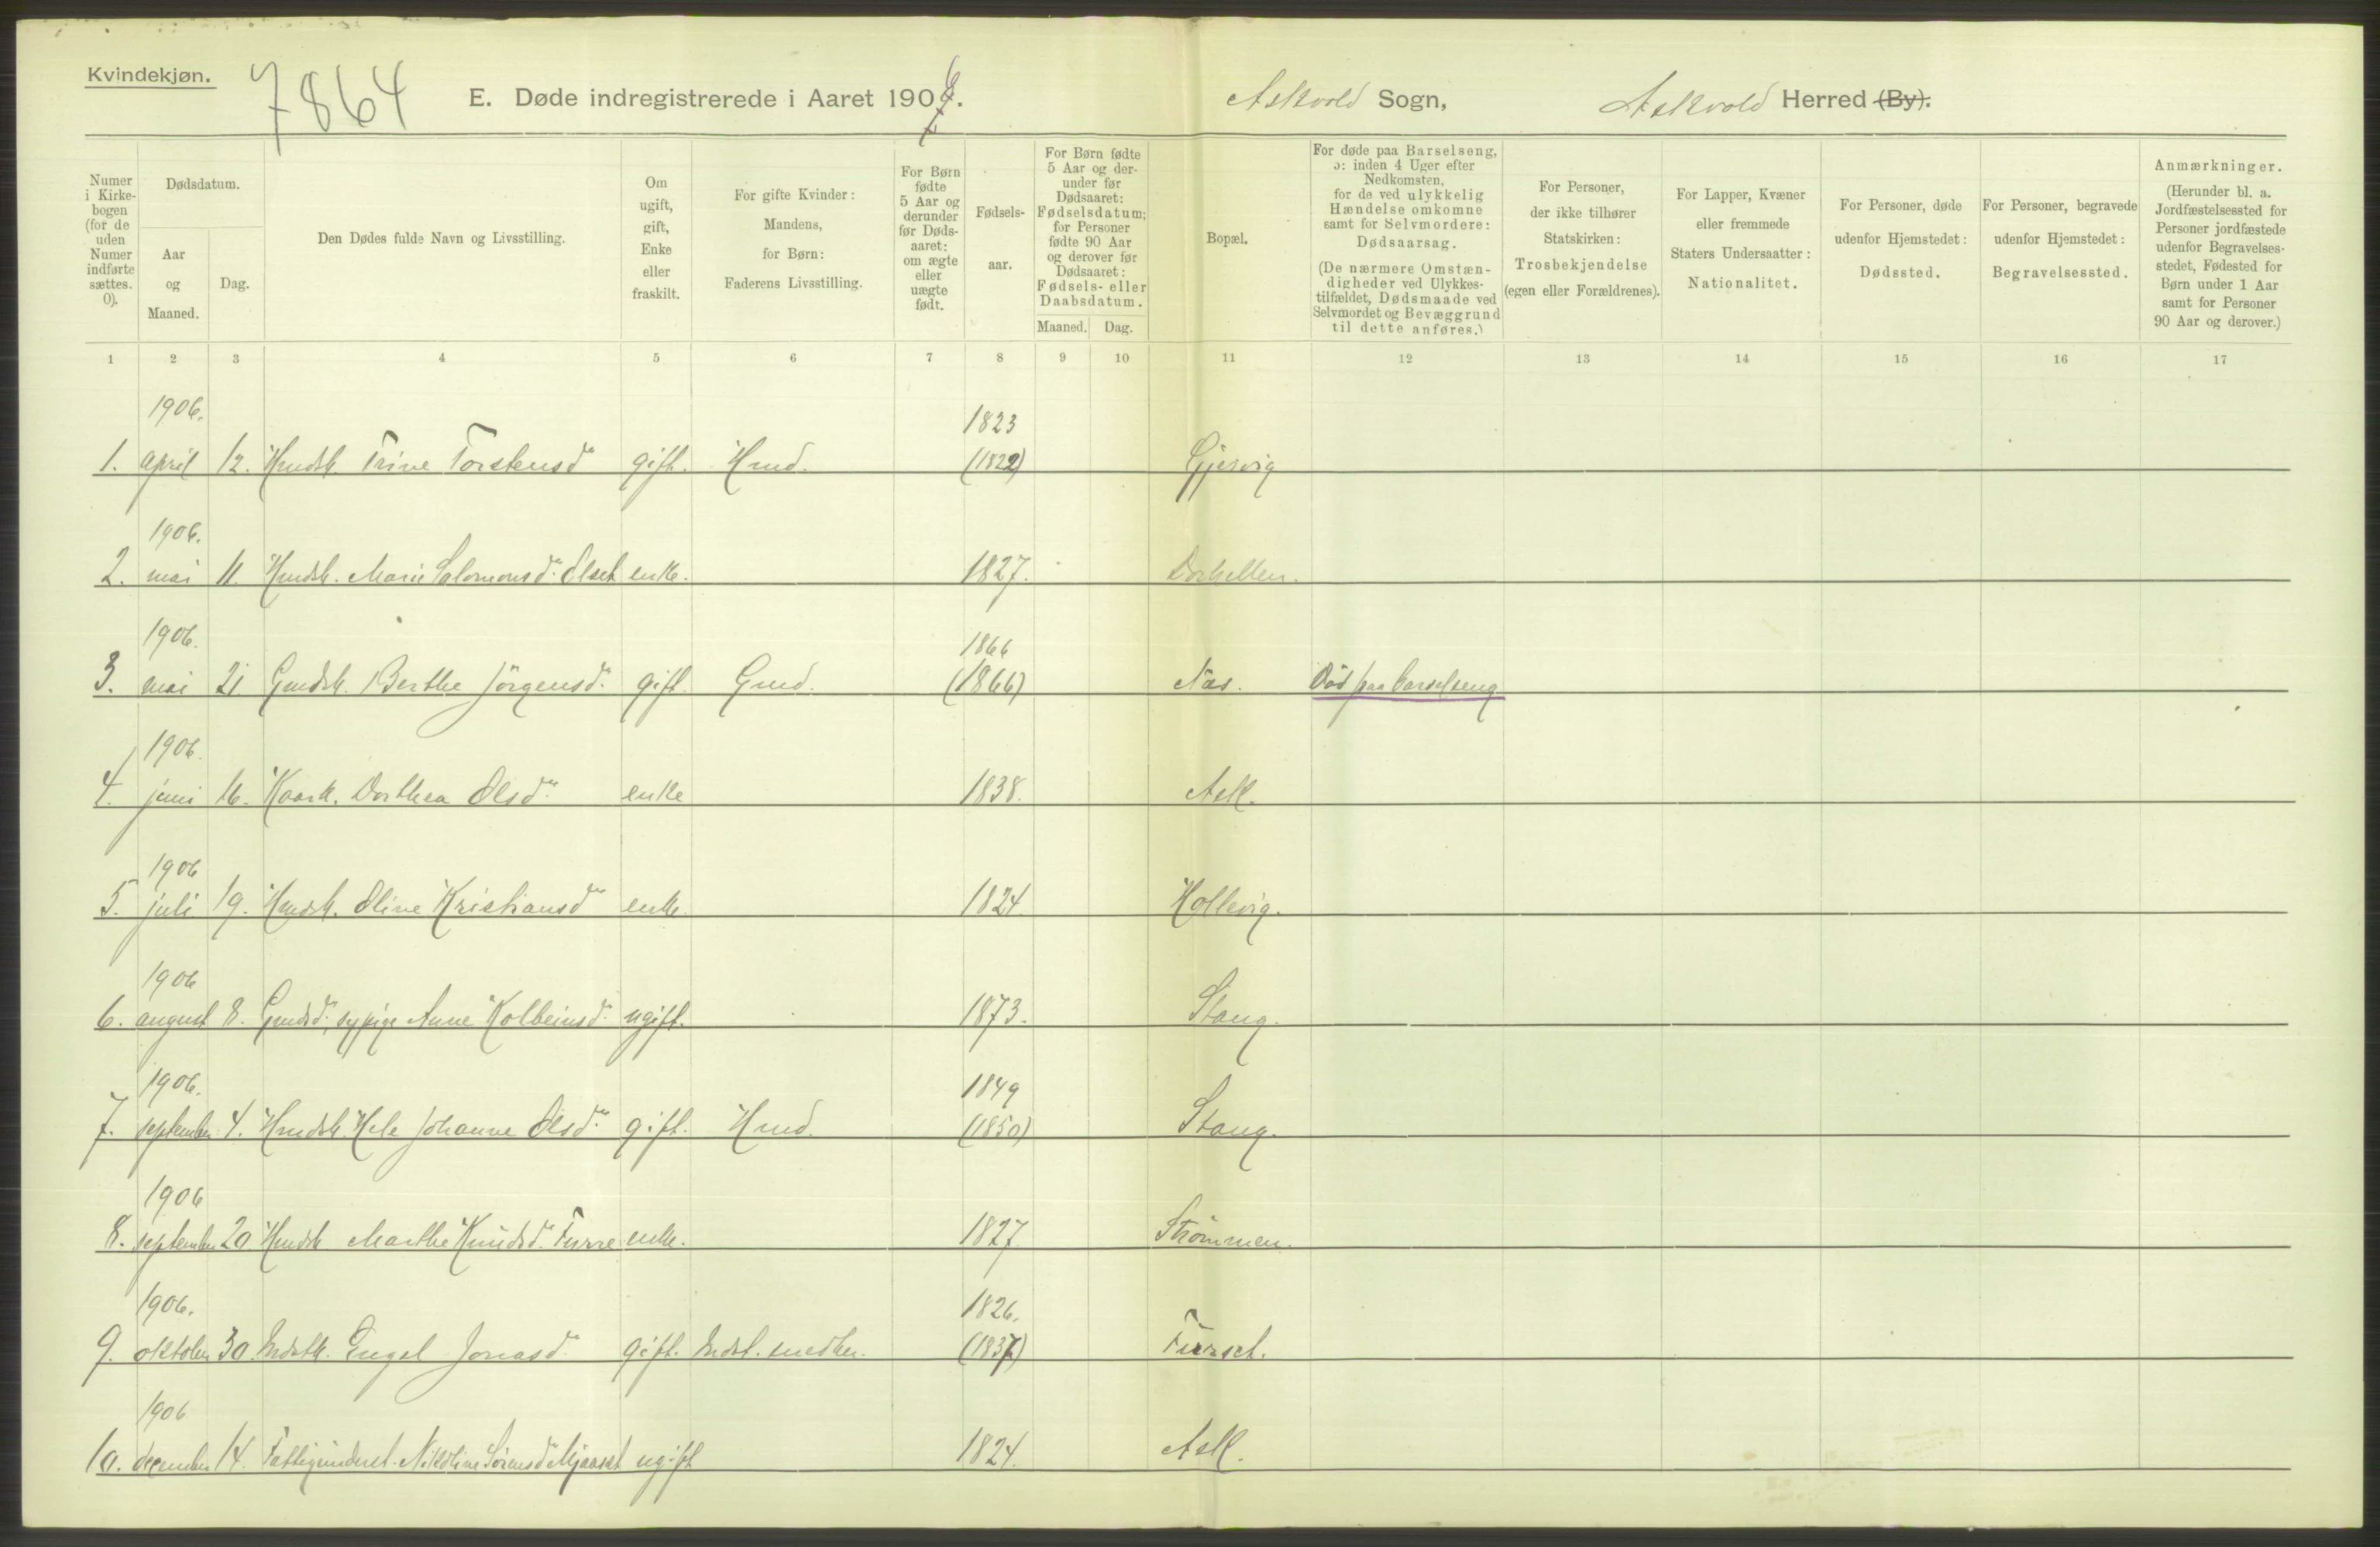 Kvindekjøn.
7864
E. Døde indregistrerede i Aaret 1906.
Askvold Sogn,
Askvold Herred (By).
Numer i Kirke-bogen (for de uden Numer indførte sættes. 0).
Dødsdatum.
Aar og Maaned.
Dag.
Den Dødes fulde Navn og Livsstilling.
Om ugift, gift, Enke eller fraskilt.
For gifte Kvinder: Mandens, for Børn: Faderens Livsstilling.
For Børn fødte 5 Aar og derunder før Døds-aaret: om ægte eller uægte født.
Fødsels-aar.
For Børn fødte 5 Aar og der-under før Dødsaaret: Fødselsdatum; for Personer fødte 90 Aar og derover før Dødsaaret: Fødsels- eller Daabsdatum.
Maaned. Dag.
Bopæl.
For døde paa Barselseng, ɔ: inden 4 Uger efter Nedkomsten, for de ved ulykkelig Hændelse omkomne samt for Selvmordere: Dødsaarsag. (De nærmere Omstæn-digheder ved Ulykkes-tilfældet, Dødsmaade ved Selvmordet og Bevæggrund til dette anføres.)
For Personer, der ikke tilhører Statskirken: Trosbekjendelse (egen eller Forældrenes).
For Lapper, Kvæner eller fremmede Staters Undersaatter: Nationalitet.
For Personer, døde udenfor Hjemstedet: Dødssted.
For Personer, begravede udenfor Hjemstedet: Begravelsessted.
Anmærkninger. (Herunder bl. a. Jordfæstelsessted for Personer jordfæstede udenfor Begravelses-stedet, Fødested for Børn under 1 Aar samt for Personer 90 Aar og derover.)
1 2 3 4 5 6 7 8 9 10 11 12 13 14 15 16 17
1906. 1823
1. april 12. Hmdsk. Trine Torstensdr gift. Hmd. (1822) Gjervig
1906.
2. mai 11. Hmdsk. Marie Salomonsdr. Olset enke. 1827.
1906. 1866
3. mai 21 Gmdsk. Berthe Jørgensdr. gift. Gmd. (1866) Næs. Død paa barselseng
1906.
4. juni 16. Kaark. Dorthea Olsdr. enke 1838. Ask.
1906
5. juli 19. Hmdsk. Oline Kristiansdr enke. 1824. Hollevig.
1906
6. august 8. Gmdsdr. sypige Anne Kolbeinsdr. ugift. 1873. Stang.
1906. 1849
7. september 4. Hmdsk. Hele Johanne Olsdr. gift. Hmd. (1850) Stang.
1906
8. september 20 Hmdsk Marthe Knudsdr. Furre enke. 1827 Strømmen.
1906. 1826.
9. oktober 30. Indstk. Engel Jonasdr. gift. Indst. snedker. (1837) Furset.
1906
10. december 14. Fattigunderst. Nikoline Sørensdr Mjaaset ugift 1824. Ask.